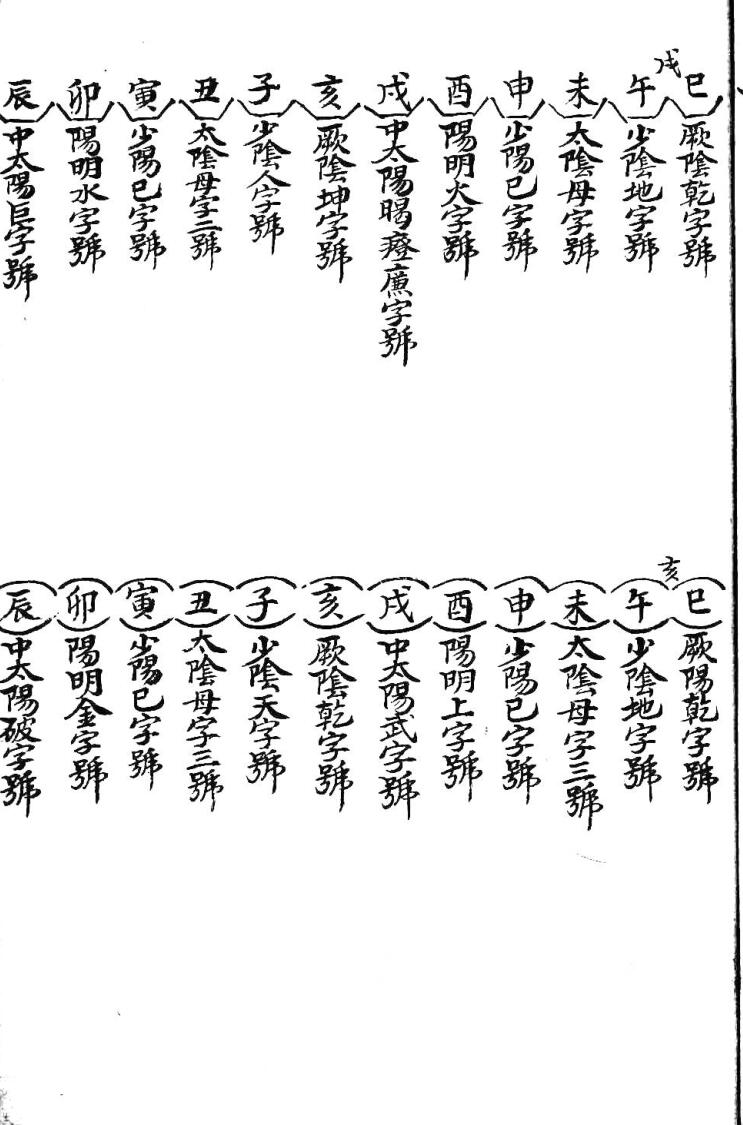 戌
巳 厥陰乾字號
午 少陰地字號
未 太陰母字號
申 少陽巳字號
酉 陽明火字號
戌 中太陽暍㾬廉字號
亥 厥陰坤字號
子 少陰人字號
丑 太陰母字二號
寅 少陽巳字號
卯 陽明水字號
辰 中太陽巨字號
亥
巳 厥陽乾字號
午 少陰地字號
未 太陰母字三號
申 少陽巳字號
酉 陽明上字號
戌 中太陽武字號
亥 厥陰乾字號
子 少陰天字號
丑 太陰母字三號
寅 少陽巳字號
卯 陽明金字號
辰 中太陽破字號